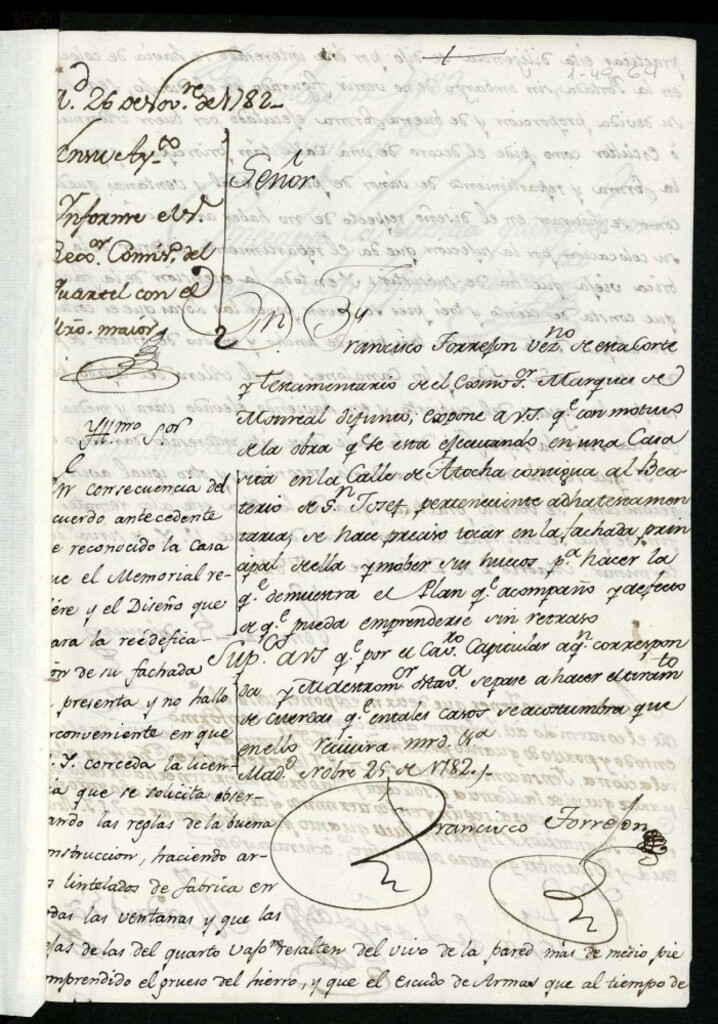 1-49-64
M.d 26 de Nov.re de 1782
En su Ay.to
Informe el S.r
Reco.or Comis.o del
Quartel con el
Mro. maior
Señor
Dn.
Francisco Torrejon vez.no de esta Corte
y testamentario de el Exmo S.or Marques de
Monreal difunto; expone a VS q.e con motivo
de la obra q.e se esta ejecutando en una Casa
sita en la Calle de Atocha contigua al Bea-
terio de S.n Josef, perteneciente a dha testamen
taria, se hace preciso tocar en la fachada prin
cipal de ella y mober sus huecos p.a hacer la
q.e demuestra el Plan q.e acompaño y a efecto
de q.e pueda emprenderse sin retraso
Sup.co a VS q.e por el Cav.ro Capitular a q.n correspon
da y Maestro m.or se pase a hacer el tiram.to
de cuerdas q.e en tales casos se acostumbra que
en ello recivira mrd. Mad.d Nobre 25 de 1782.
Francisco Torrejon
Yllmo S.or
En consecuencia del
acuerdo antecedente
he reconocido la Casa
que el Memorial re-
fiere y el Diseño que
para la reedifica-
ción de su fachada
presenta y no hallo
inconveniente en que
V. S. conceda la licen-
cia que se solicita obser-
vando las reglas de la buena
construccion, haciendo ar-
cos lintelados de fabrica en
todas las ventanas y que las
rejas de las del quarto vajo no resalten del vivo de la pared mas de medio pie
comprendido el grueso del hierro, y que el escudo de Armas que al tiempo de